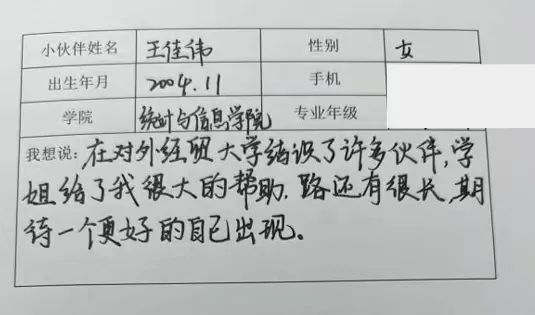 小伙伴姓名 王佳伟 性别 女
出生年月 2004.11 手机
学院 统计与信息学院 专业年级
我想说：在对外经贸大学结识了许多伙伴，学
姐给了我很大的帮助，路还有很长，期
待一个更好的自己出现。